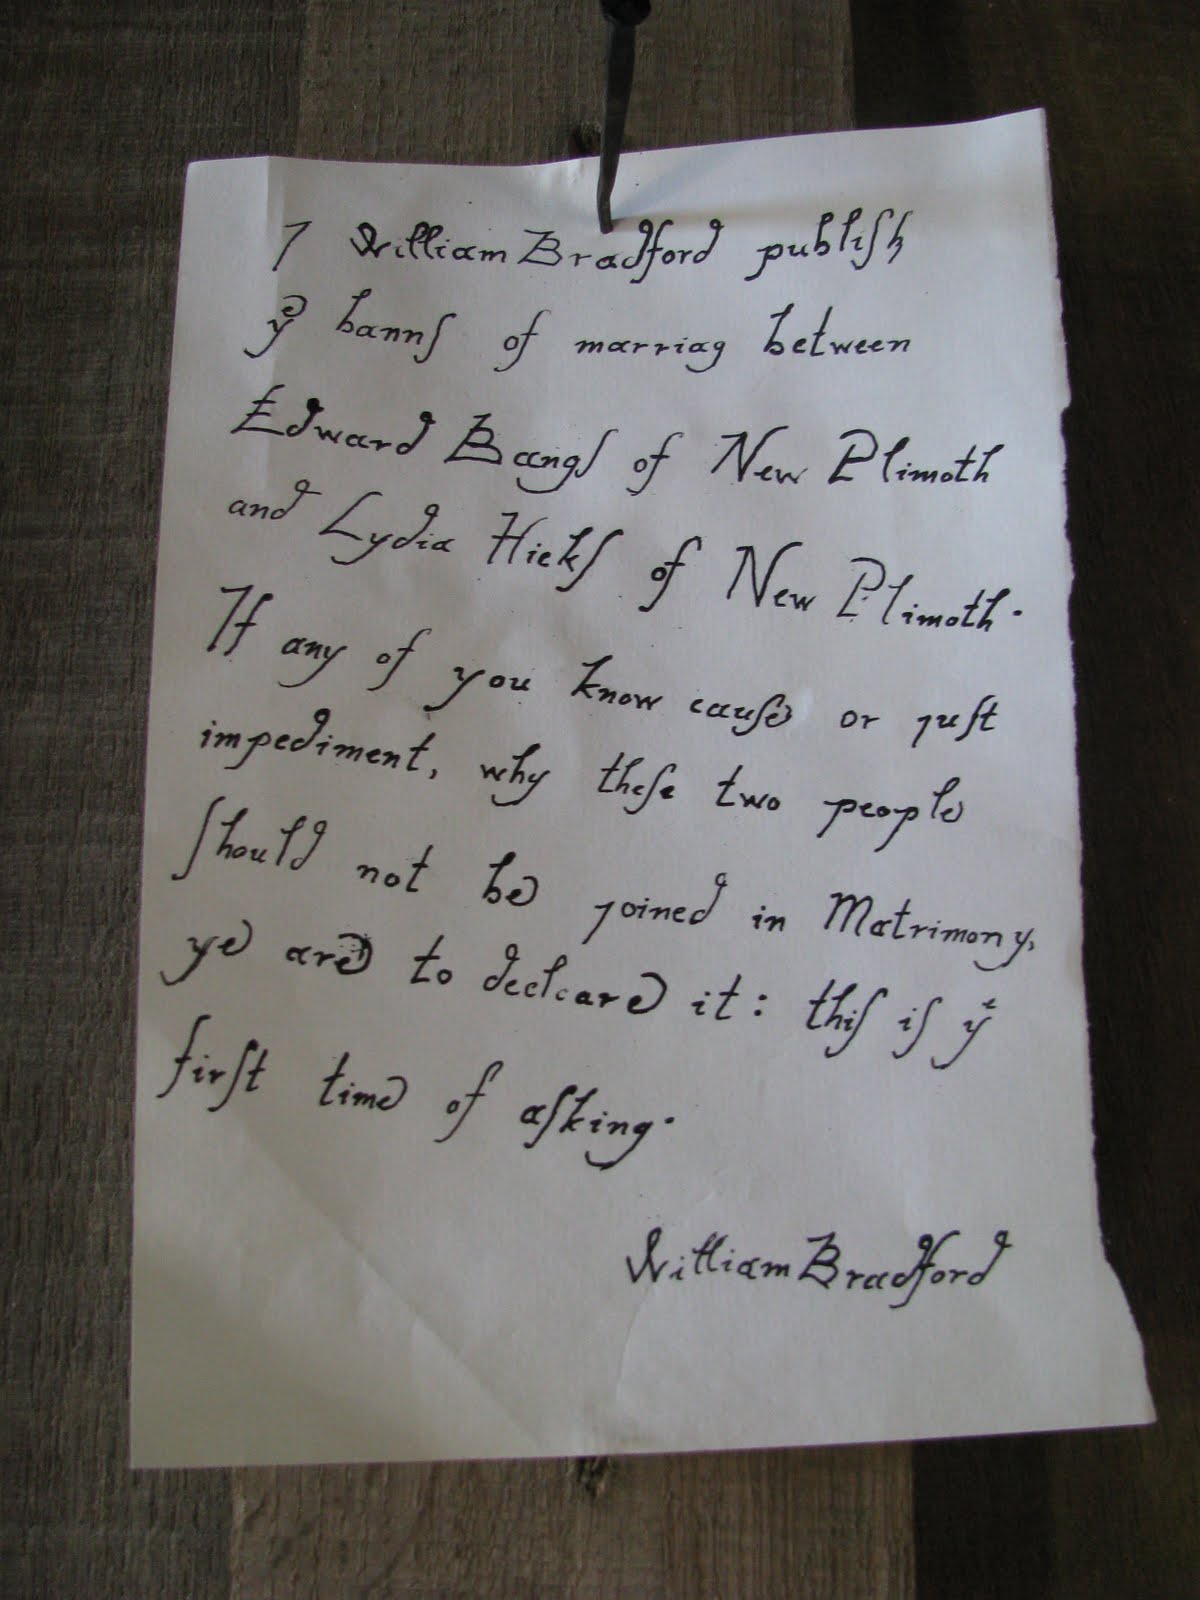 I William Bradford publiſh
yᵉ bannſ of marriag between
Edward Bangſ of New Plimoth
and Lydia Hickſ of New Plimoth.
If any of you know cauſe or juſt
impediment, why theſe two people
ſhould not be joined in Matrimony,
ye are to declare it: thiſ iſ yᵉ
firſt time of aſking.
William Bradford